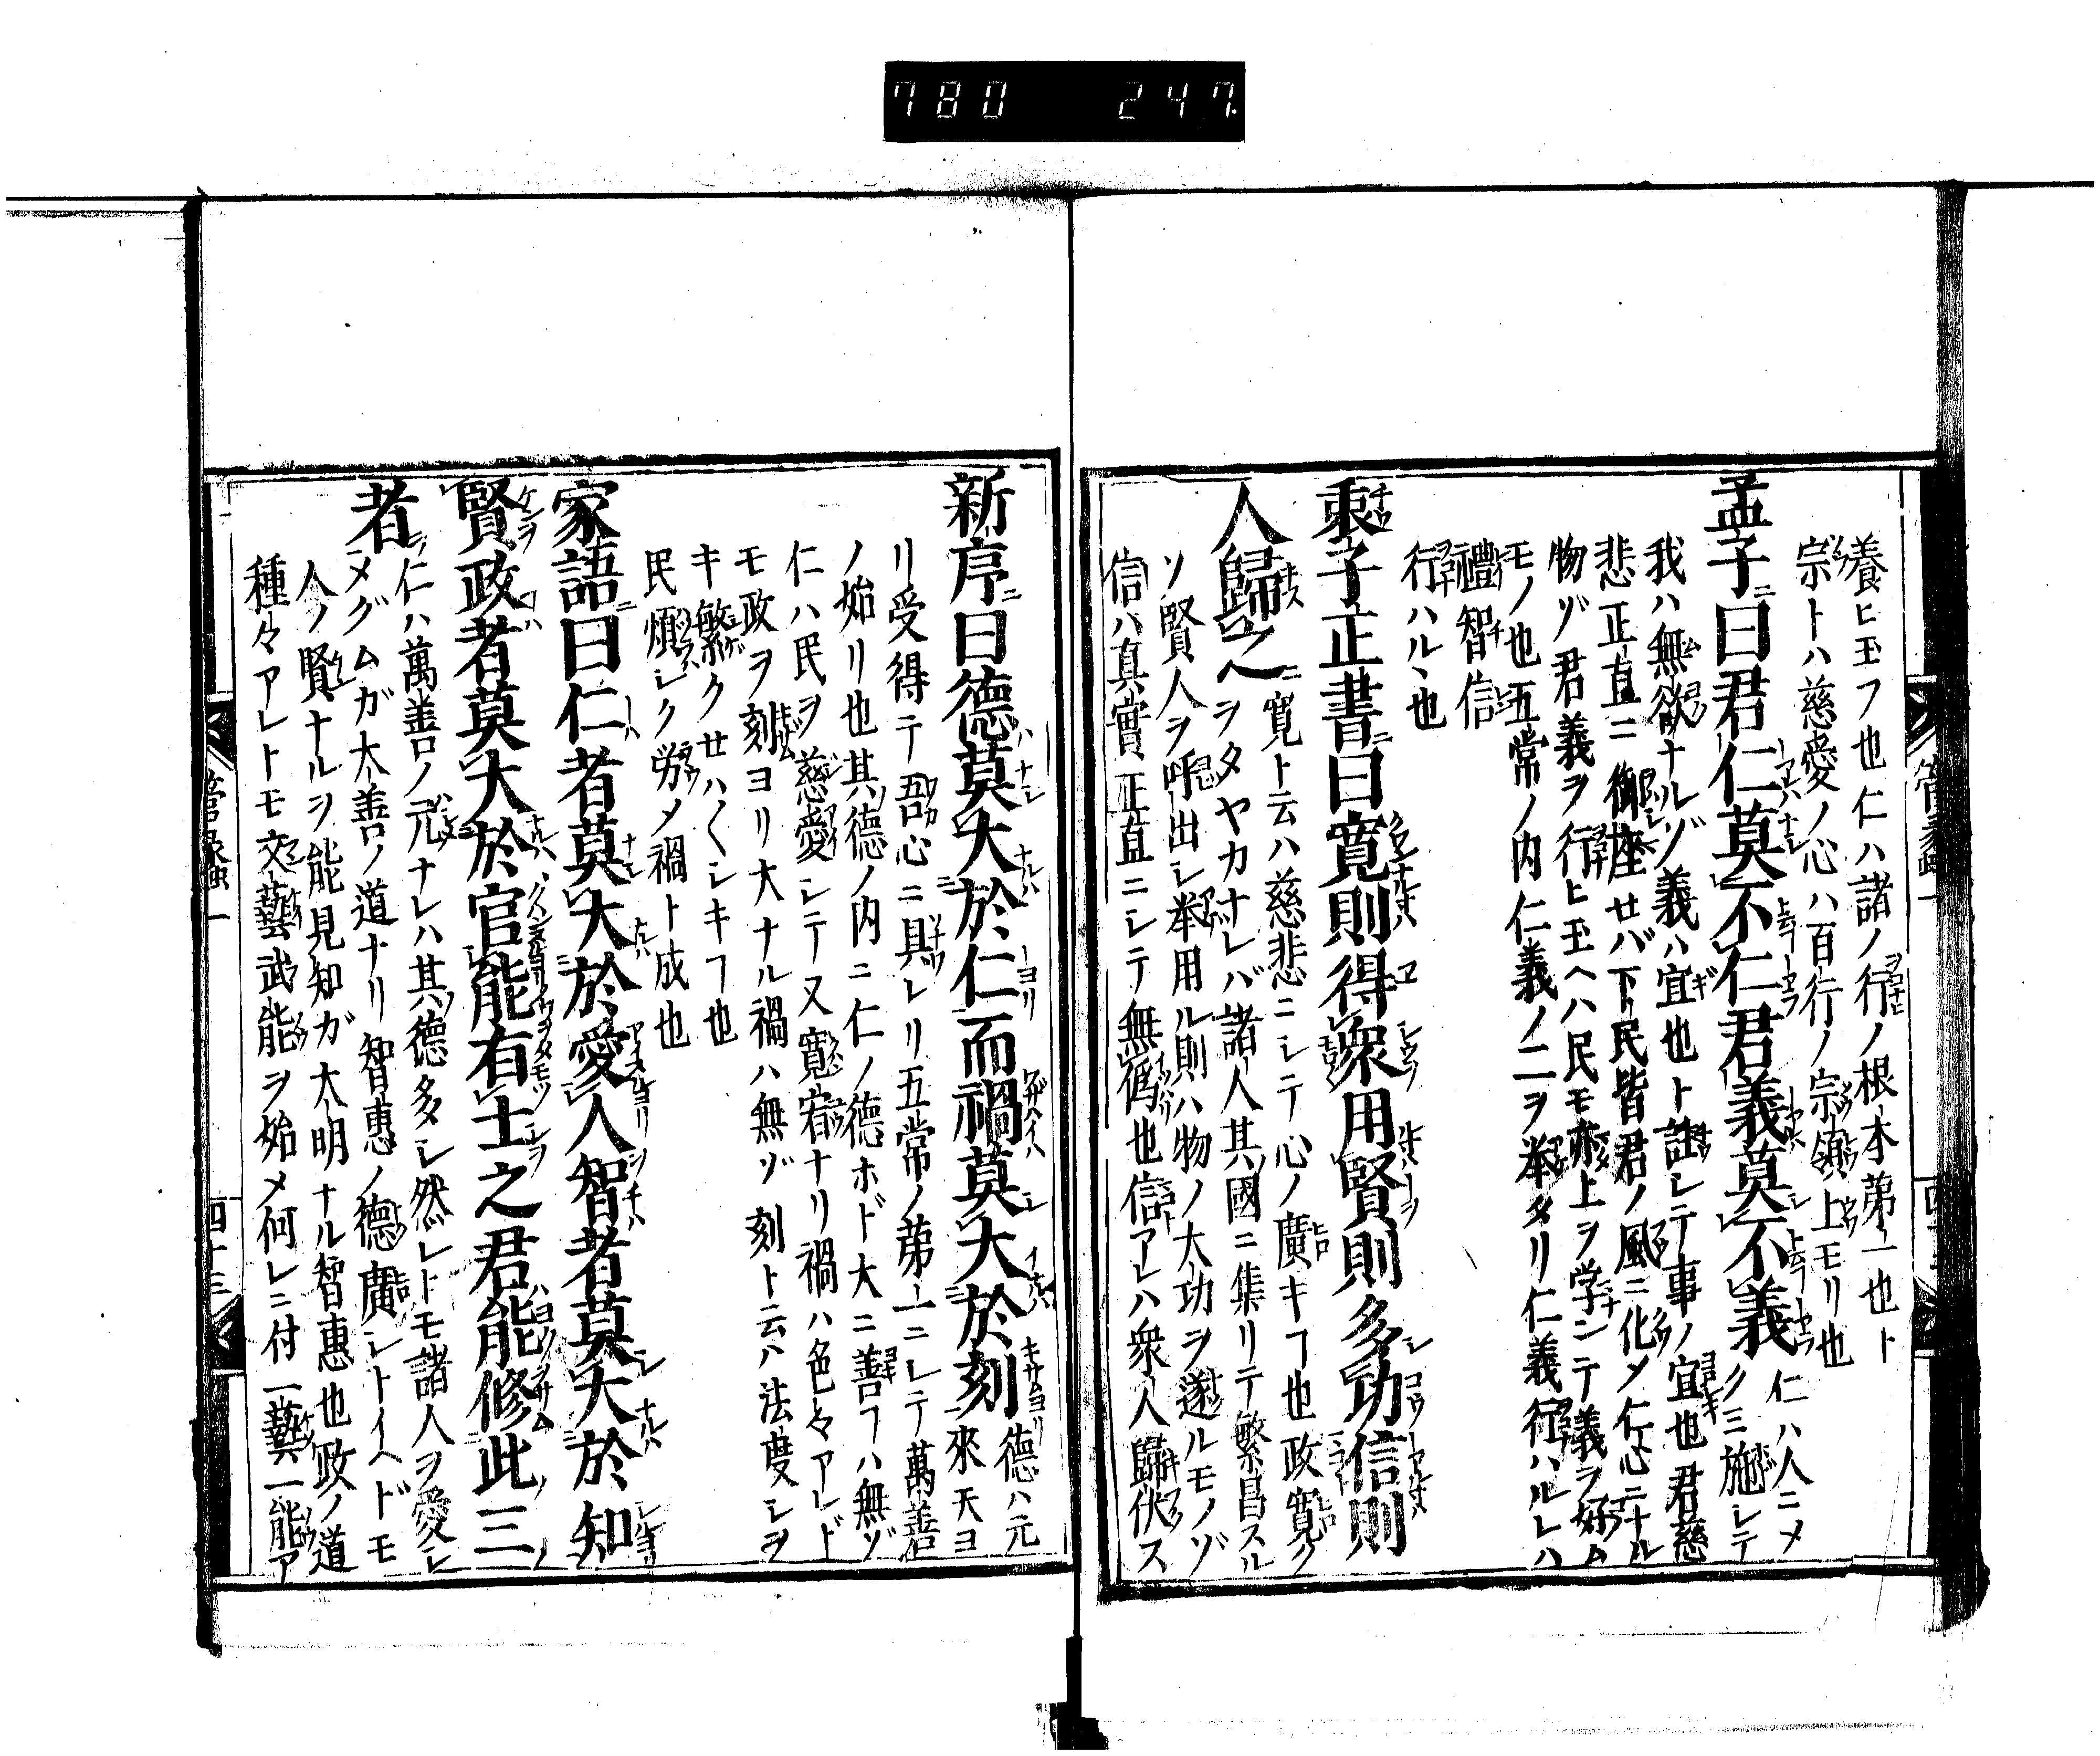 780 247
養ヒ玉フ也仁ハ諸ノ行ノ根本第一也ト
宗トハ慈愛ノ心ハ百行ノ宗領上モリ也
孟子曰君仁莫不仁君義莫不義 仁ハ人ニメ
クミ施シテ
我ハ無欲ナルゾ義ハ宜也ト註シテ事ノ宜也君慈
悲正直ニ御座せバ下民皆君ノ風ニ化メ仁心ニナル
物ゾ君義ヲ行ヒ玉ヘハ民モ亦上ヲ学ンテ義ヲ好ム
モノ也五常ノ内仁義ノ二ヲ挙タリ仁義行ハルレハ
禮智信
行ハルヽ也
乗子正書曰寛則得衆用賢則多功信則
人歸之 寛ト云ハ慈悲ニシテ心ノ廣キヿ也政寛ク
ヲタヤカナレバ諸人其國ニ集リテ繁昌スル
ソ賢人ヲ呼出シ挙用ル則ハ物ノ大功ヲ遂ルモノゾ
信ハ真實正直ニシテ無偽也信アレハ衆人歸伏ス
新序曰德莫大於仁而禍莫大於刻 德ハ元
來天ヨ
リ受得テ吾心ニ具レリ五常ノ第一ニシテ萬善
ノ始リ也其德ノ内ニ仁ノ德ホド大ニ善ヿハ無ゾ
仁ハ民ヲ慈愛シテ又寛宥ナリ禍ハ色々アレド
モ政ヲ刻ヨリ大ナル禍ハ無ゾ刻ト云ハ法度シヲ
キ繁クせハ〱シキヿ也
民煩シク労メ禍ト成也
家語曰仁者莫大於愛人智者莫大於知
賢政者莫大於官能有士之君能修此三
者 仁ハ萬善ノ元ナレハ其德多シ然レトモ諸人ヲ愛シ
メグムガ大善ノ道ナリ智惠ノ德廣シトイヘドモ
人ノ賢ナルヲ能見知ガ大明ナル智惠也政ノ道
種々アレトモ文藝武能ヲ始メ何レニ付一藝一能ア
四十三